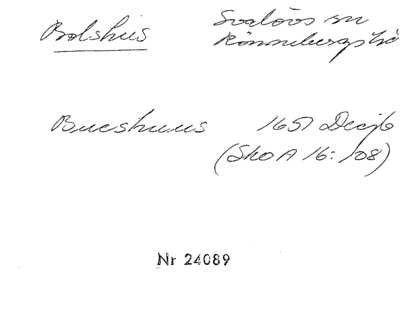 Bolshus Svalövs sn
Rönnebergs hd
Bueshuus 1651 Decjb
(Sko A 16: 108)
Nr 24089